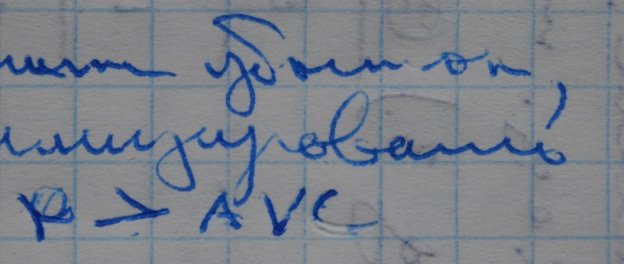 убыток,
мизировать
P > AVC